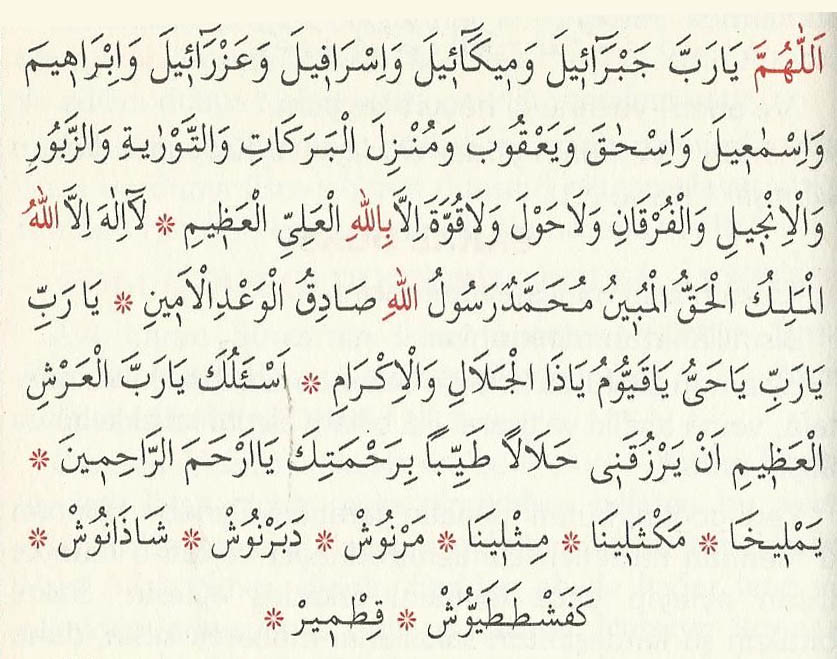 اَللّٰهُمَّ يَارَبَّ جَبْرَآئِيلَ وَمِيكَٓائِيلَ وَاِسْرَافِيلَ وَعَزْرَآئِيلَ وَاِبْرَاهِيمَ
وَاِسْمٰعِيلَ وَاِسْحٰقَ وَيَعْقُوبَ وَمُنْزِلَ الْبَرَكَاتِ وَالتَّوْرٰيةِ وَالزَّبُورِ
وَالْاِنْجِيلِ وَالْفُرْقَانِ وَلَاحَوْلَ وَلَاقُوَّةَ اِلَّابِاللهِ الْعَلِىِّ الْعَظِيمِ * لَآاِلٰهَ اِلَّا اللهُ
الْمَلِكُ الْحَقُّ الْمُبِينُ مُحَمَّدٌرَسُولُ اللهِ صَادِقُ الْوَعْدِالْاَمِينِ * يَا رَبِّ
يَارَبِّ يَاحَىُّ يَاقَيُّومُ يَاذَا الْجَلَالِ وَالْاِكْرَامِ * اَسْئَلُكَ يَارَبَّ الْعَرْشِ
الْعَظِيمِ اَنْ يَرْزُقَنِى حَلَالًا طَيِّباً بِرَحْمَتِكَ يَااَرْحَمَ الرَّاحِمِينَ *
يَمْلِيخَا * مَكْثَلِينَا * مِثْلِينَا * مَرْنُوشْ * دَبَرْنُوشْ * شَاذَانُوشْ *
كَفَشْطَطَيُّوشْ * قِطْمِيرْ *